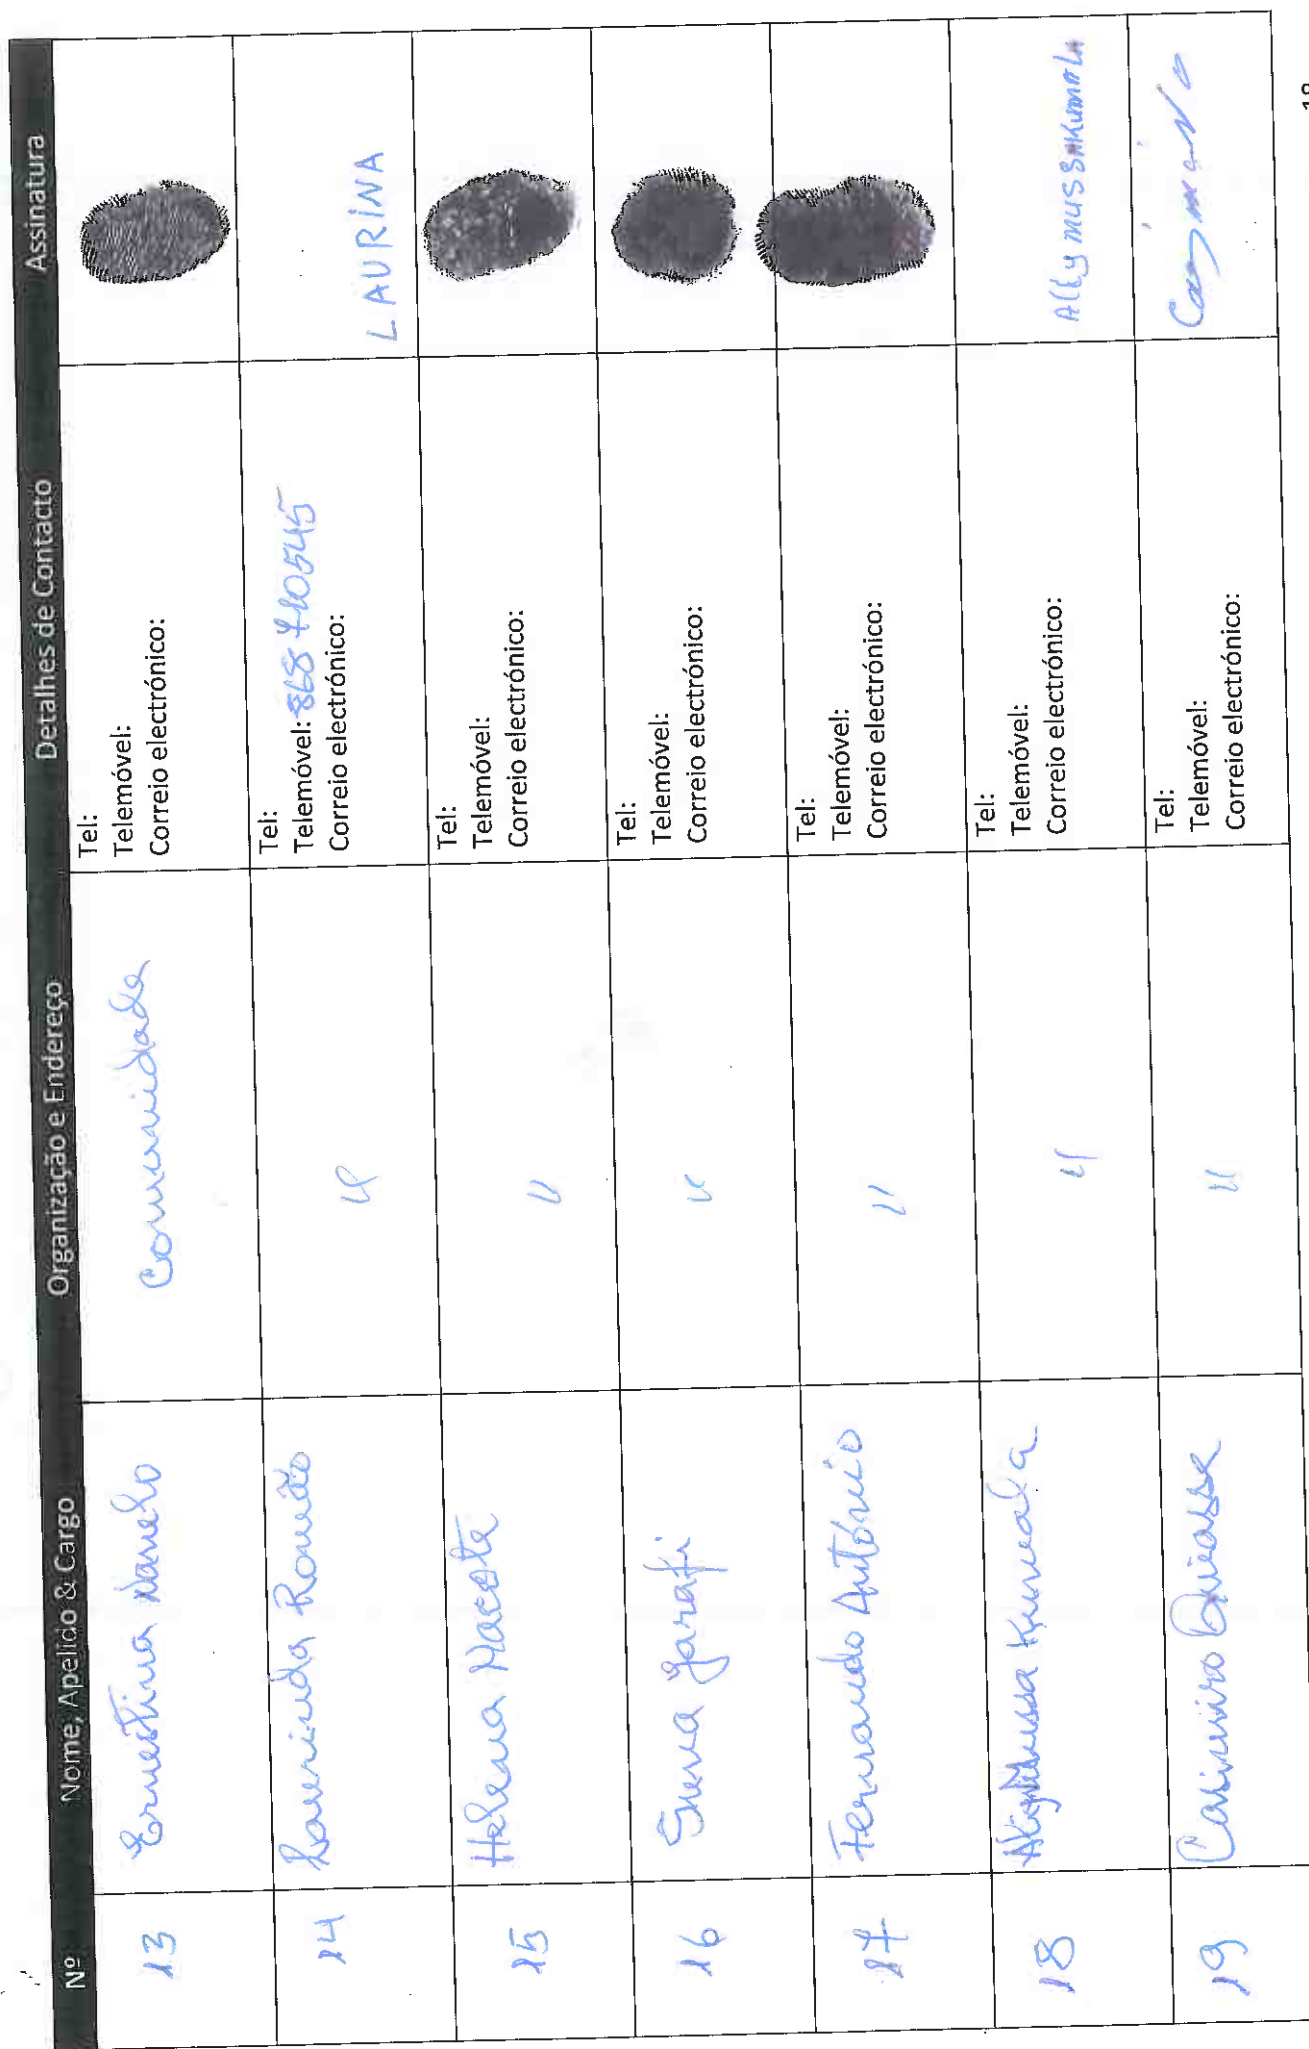 Nº Nome, Apelido & Cargo Organização e Endereço Detalhes de Contacto Assinatura
13 Ernestina Comunidade
Tel:
Telemóvel:
Correio electrónico:
14 Laurinda Romão 〃
Tel:
Telemóvel: 868710545
Correio electrónico:
LAURINA
15 Helena Macota 〃
Tel:
Telemóvel:
Correio electrónico:
16 Garafi 〃
Tel:
Telemóvel:
Correio electrónico:
17 Fernando António 〃
Tel:
Telemóvel:
Correio electrónico:
18 Kumala 〃
Tel:
Telemóvel:
Correio electrónico:
19 Casimiro 〃
Tel:
Telemóvel:
Correio electrónico:
Casimiro